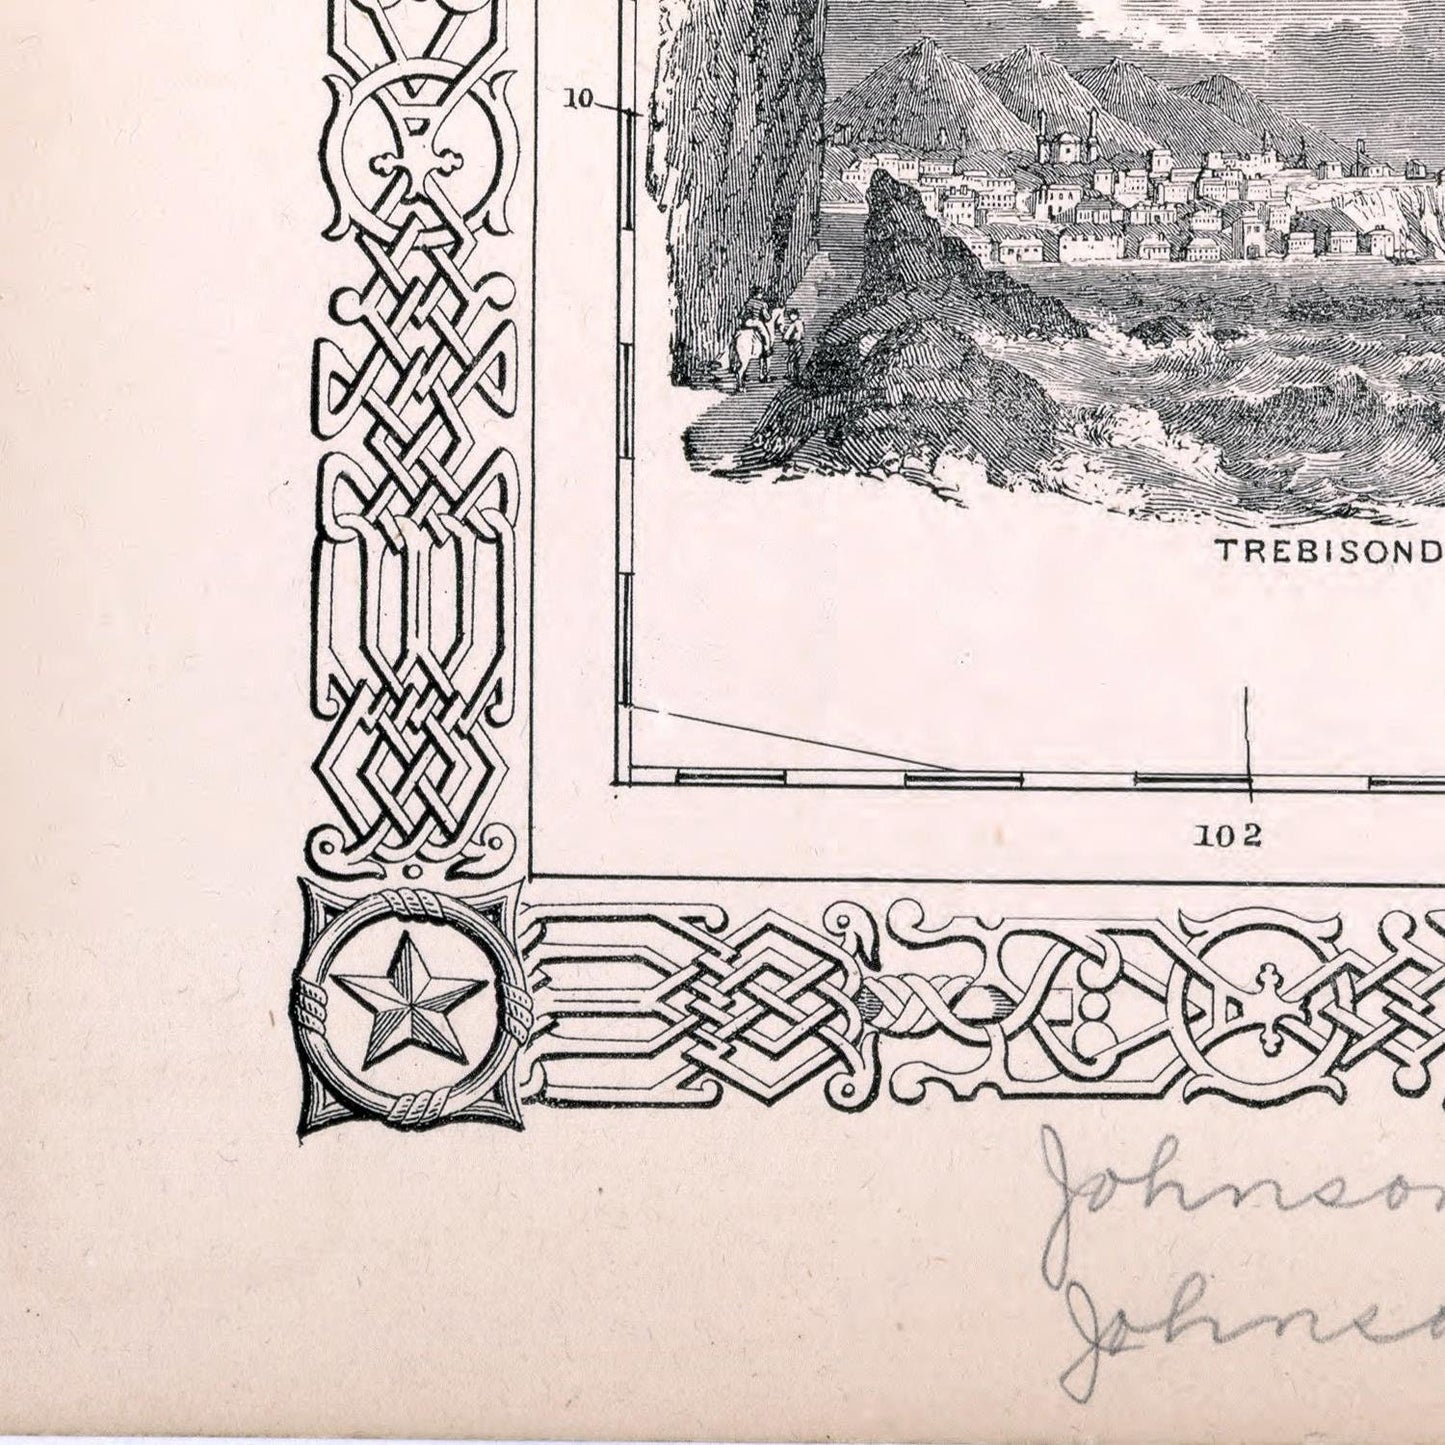 10
TREBISOND
102
Johnson
Johnso